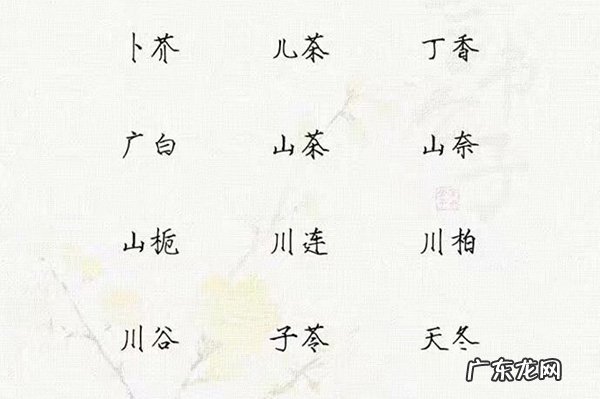 卜芥 儿茶 丁香
广白 山茶 山奈
山栀 川连 川柏
川谷 子苓 天冬
广东龙网